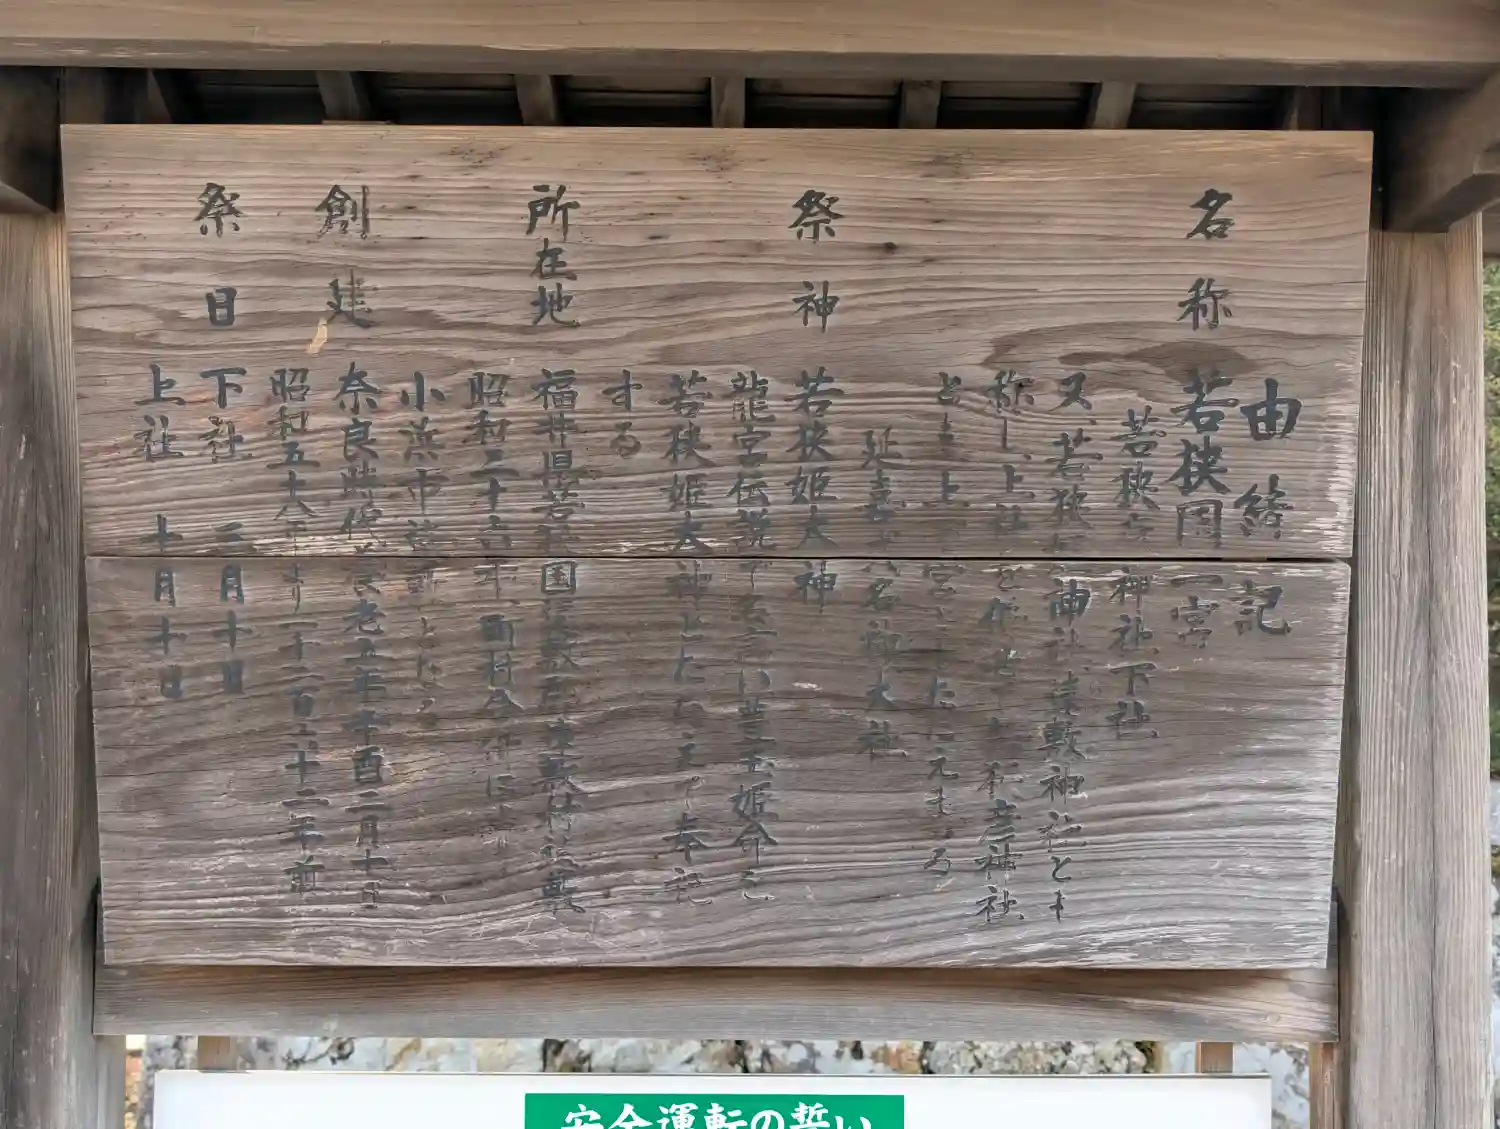 由緒記
名称 若狭国一宮
若狭 神社 下社
又、若狭 神社、遠敷神社とも
称し、上社を併せて若狭彦神社
とも上 宮さまとたたえまつる
延喜 名神大社
祭神 若狭姫大神
龍宮伝説で名高い豊玉姫命を
若狭姫大神とたたえて奉祀
する
所在地 福井県若狭国遠敷
昭和二十六年、町村合併に
小浜市 となる
創建 奈良時代養老五年辛酉二月十日
昭和五十八年より一千二百六十二年前
祭日 下社 三月十日
上社 十月十日
安全運転の誓い